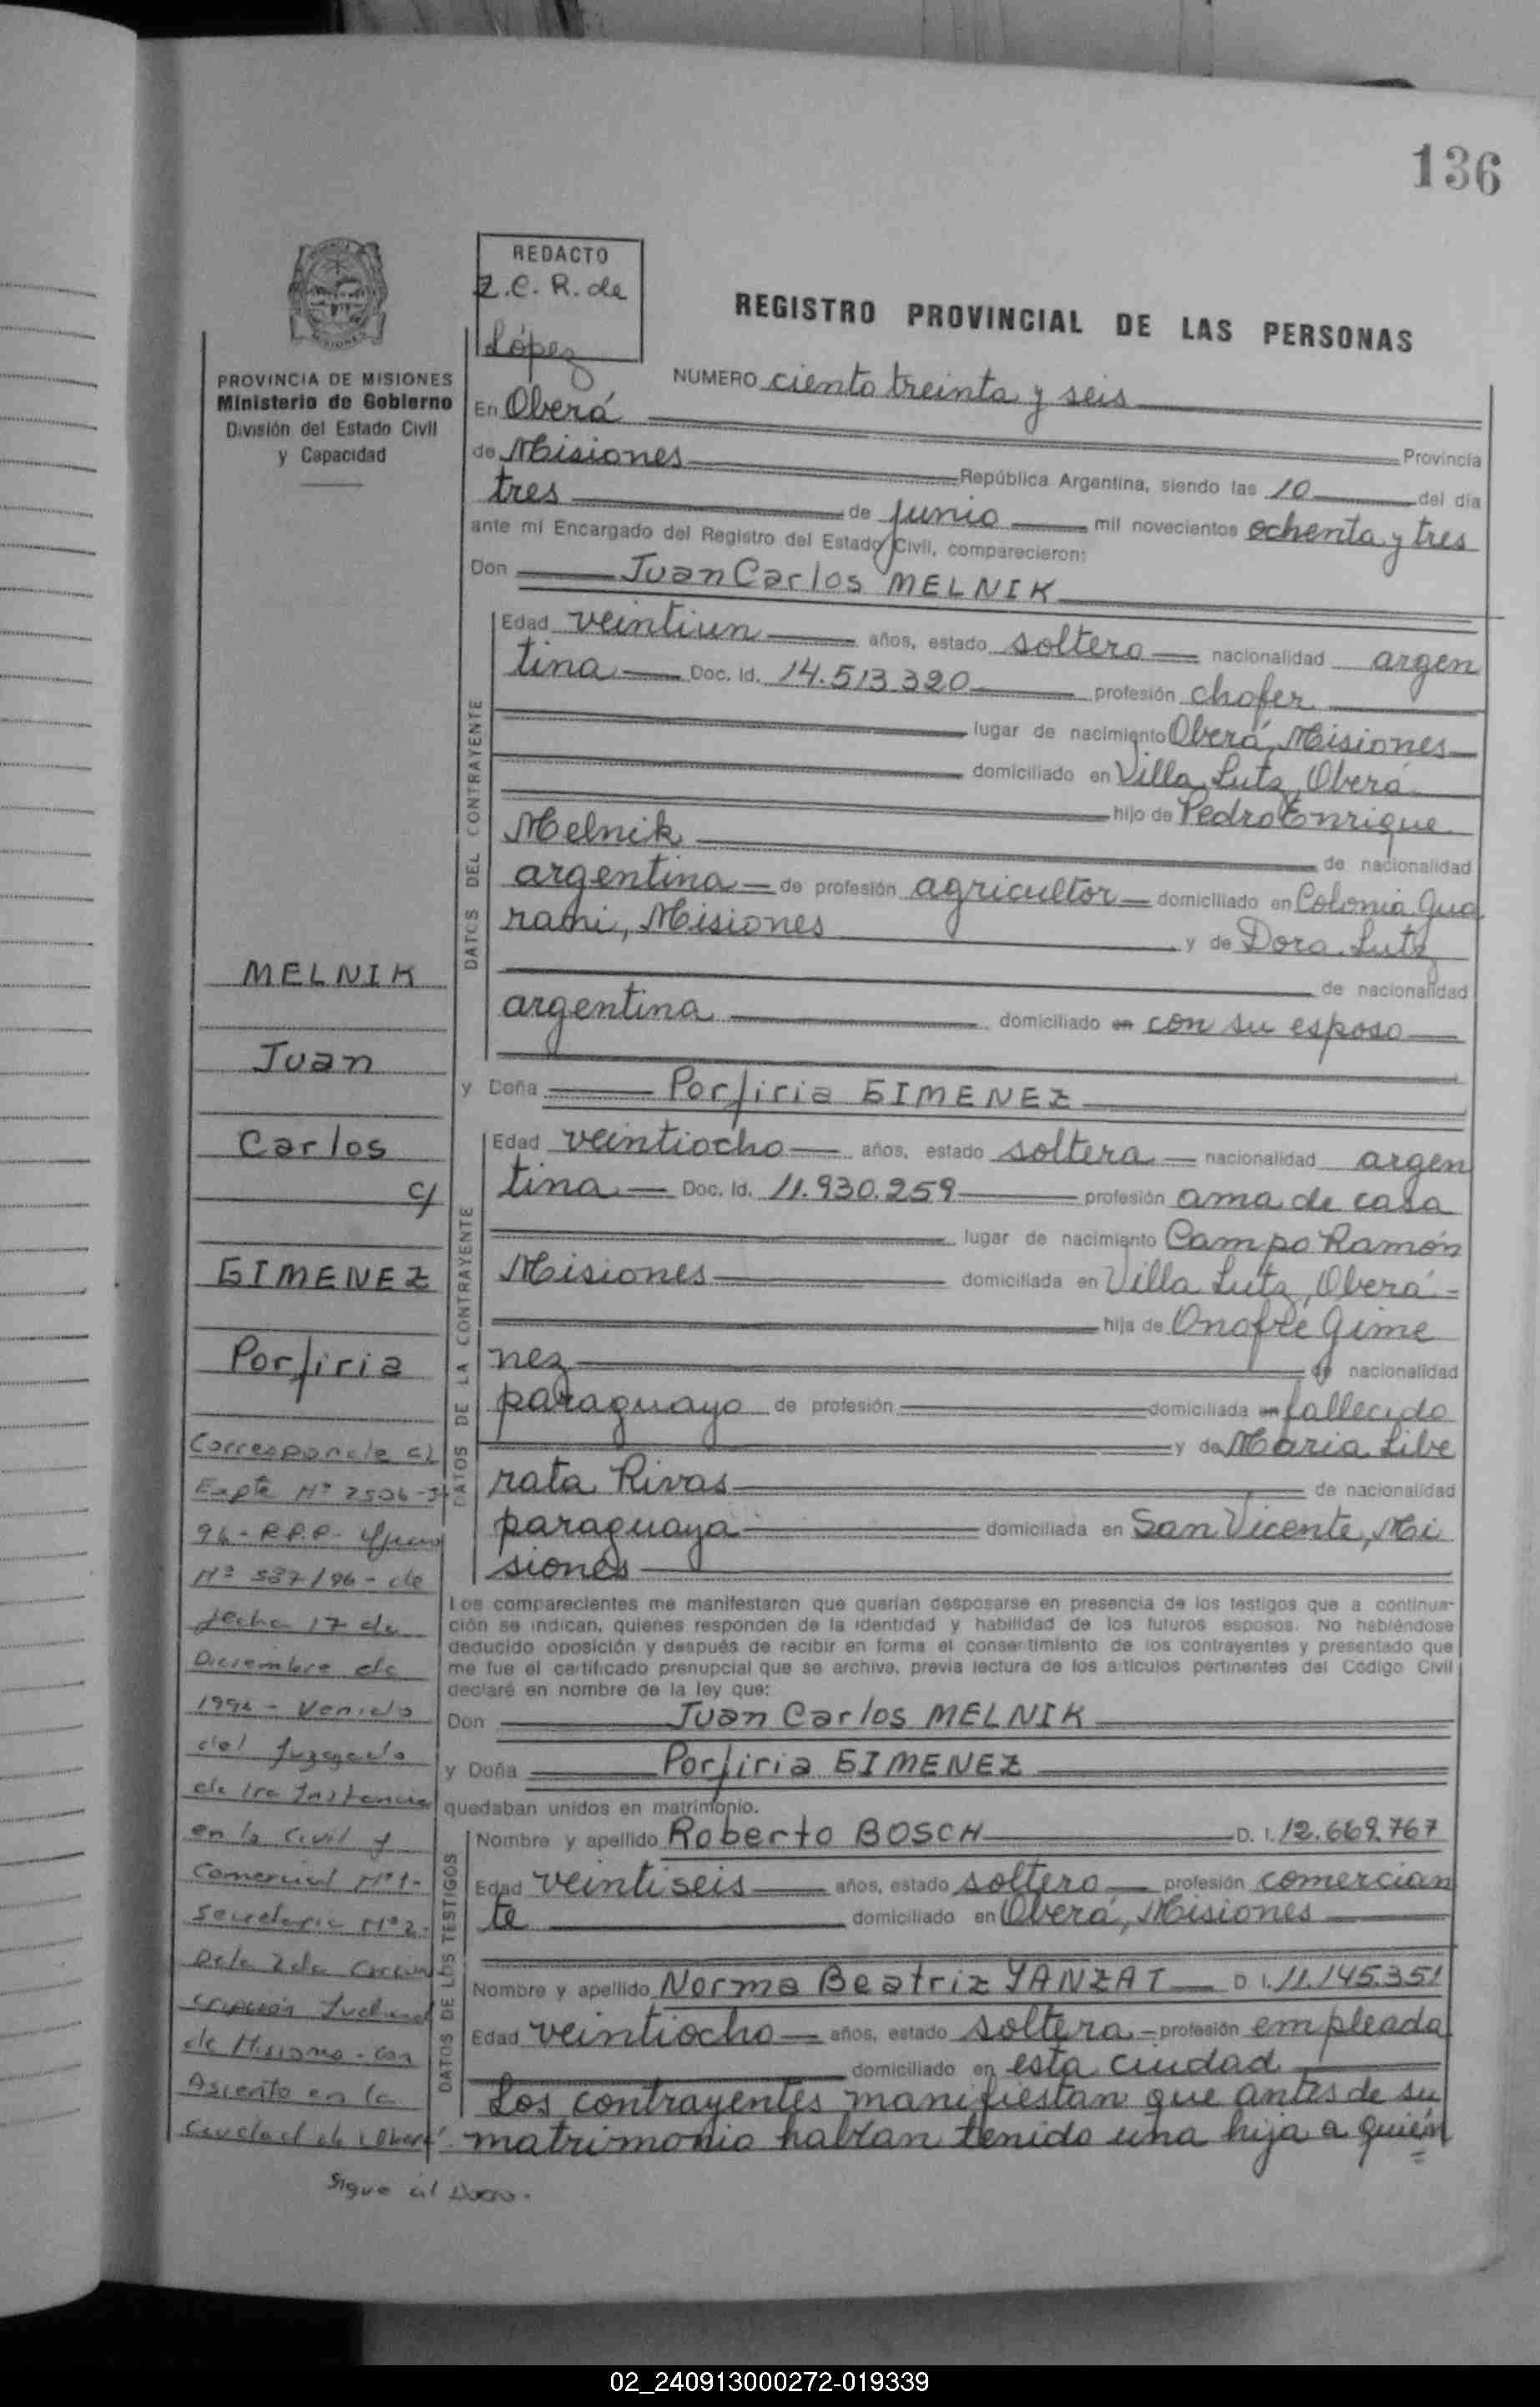 136
REDACTO
Z.C.R. de
López
REGISTRO PROVINCIAL DE LAS PERSONAS
PROVINCIA DE MISIONES
Ministerio de Gobierno
División del Estado Civil
y Capacidad
NUMERO ciento treinta y seis
En Oberá Provincia
de Misiones República Argentina, siendo las 10 del día
tres de junio mil novecientos ochenta y tres
ante mi Encargado del Registro del Estado Civil, comparecieron:
Don Juan Carlos MELNIK
DATOS DEL CONTRAYENTE
Edad veintiun años, estado soltero nacionalidad argen
tina Doc. Id. 14.513.320 profesión chofer
lugar de nacimiento Oberá, Misiones
domiciliado en Villa Lutz, Oberá
hijo de Pedro Enrique
Melnik de nacionalidad
argentina de profesión agricultor domiciliado en Colonia Gua
rani, Misiones y de Dora Lutz
de nacionalidad
argentina domiciliado en con su esposo
y Doña Porfiria GIMENEZ
DATOS DE LA CONTRAYENTE
Edad veintiocho años, estado soltera nacionalidad argen
tina Doc. Id. 11.930.259 profesión ama de casa
lugar de nacimiento Campo Ramón
Misiones domiciliada en Villa Lutz, Oberá
hija de Onofre Gime
nez de nacionalidad
paraguayo de profesión domiciliada en fallecido
y de Maria Libe
rata Rivas de nacionalidad
paraguaya domiciliada en San Vicente, Mi
siones
Los comparecientes me manifestaron que querían desposarse en presencia de los testigos que a continua-
ción se indican, quienes responden de la identidad y habilidad de los futuros esposos. No habiéndose
deducido oposición y después de recibir en forma el consentimiento de los contrayentes y presentado que
me fue el certificado prenupcial que se archiva, previa lectura de los artículos pertinentes del Código Civil
declaré en nombre de la ley que:
Don Juan Carlos MELNIK
y Doña Porfiria GIMENEZ
quedaban unidos en matrimonio.
DATOS DE LOS TESTIGOS
Nombre y apellido Roberto BOSCH D. I. 12.669.767
Edad veintiseis años, estado soltero profesión comercian
te domiciliado en Oberá, Misiones
Nombre y apellido Norma Beatriz YANZAT D. I. 11.145.351
Edad veintiocho años, estado soltera profesión empleada
domiciliado en esta ciudad
Los contrayentes manifiestan que antes de su
matrimonio habían tenido una hija a quién
MELNIK
Juan
Carlos
c/
GIMENEZ
Porfiria
Corresponde al
Expte Nº 2506-
96 - R.P.P.
Nº 537/96 - de
fecha 17 de
Diciembre de
1996 - Venido
del Juzgado
de 1ra Instancia
en lo Civil y
Comercial Nº 1-
Secretaria Nº 2-
De la 2da Circuns
cripción Judicial
de Misiones - con
Asiento en la
Ciudad de Oberá
Sigue al Dorso.
02_240913000272-019339